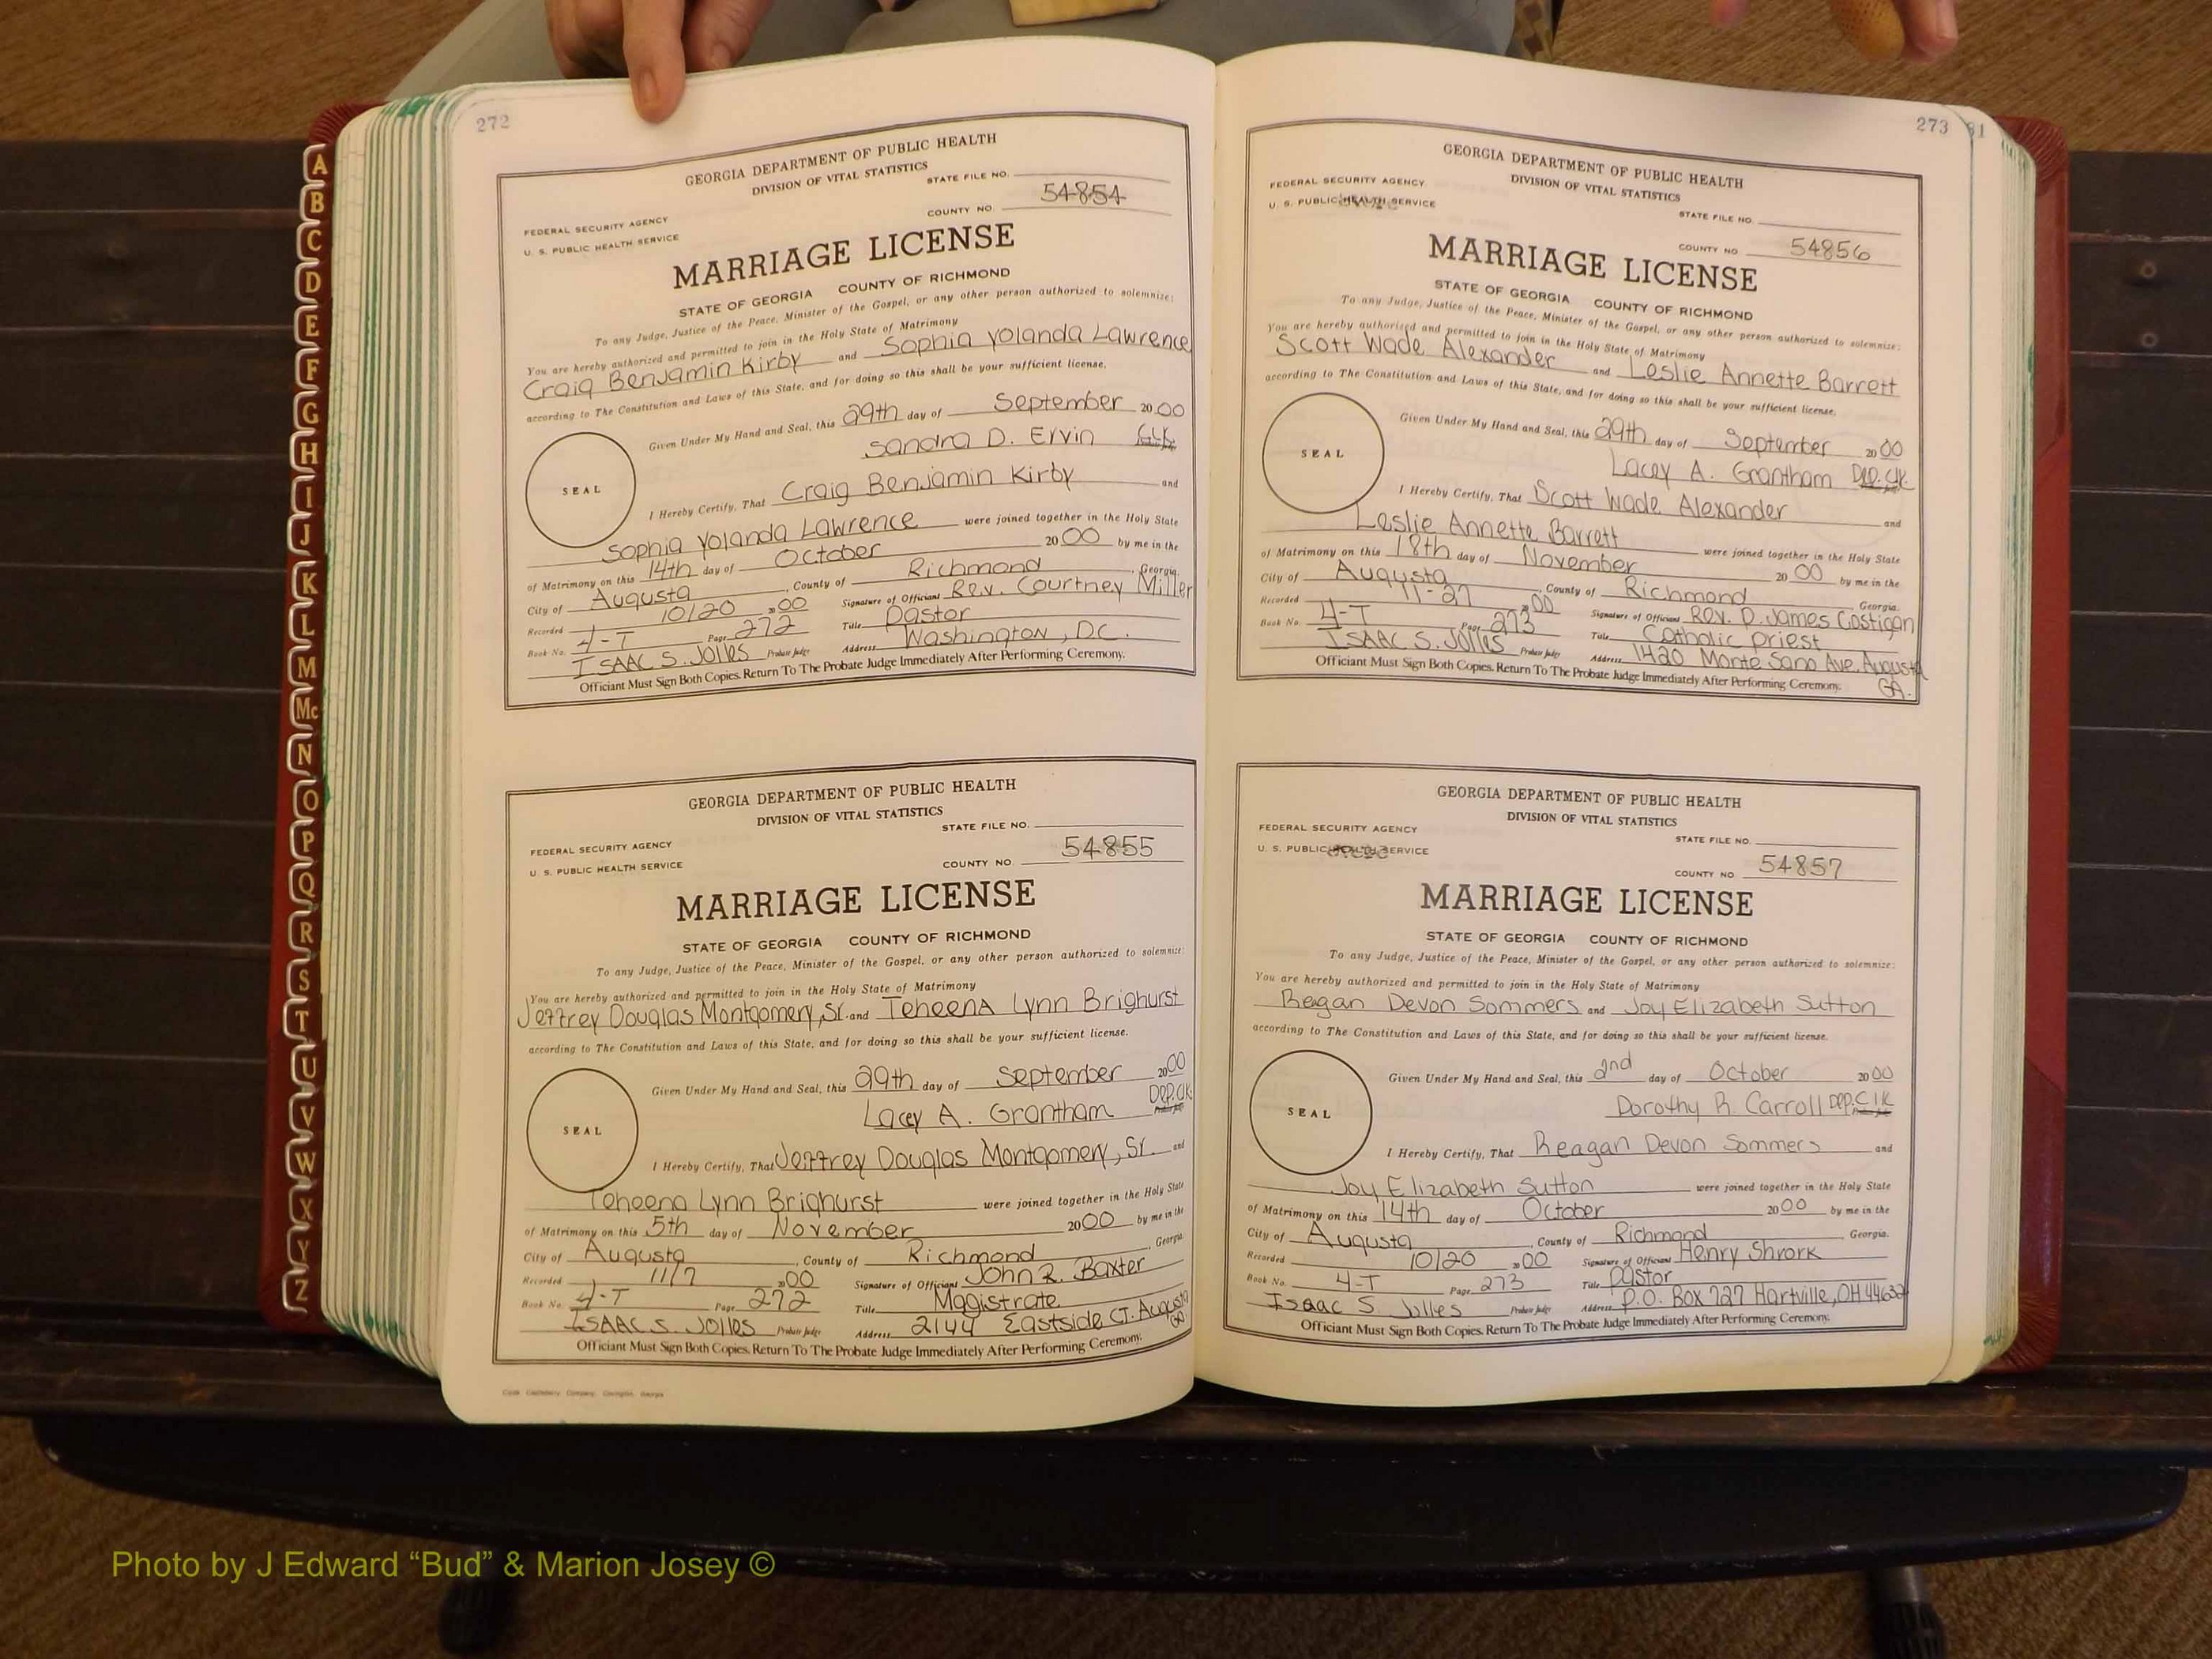 272
GEORGIA DEPARTMENT OF PUBLIC HEALTH
DIVISION OF VITAL STATISTICS
STATE FILE NO.
FEDERAL SECURITY AGENCY
U. S. PUBLIC HEALTH SERVICE
COUNTY NO. 54854
MARRIAGE LICENSE
STATE OF GEORGIA COUNTY OF RICHMOND
To any Judge, Justice of the Peace, Minister of the Gospel, or any other person authorized to solemnize:
You are hereby authorized and permitted to join in the Holy State of Matrimony
Craig Benjamin Kirby and Sophia Yolanda Lawrence
according to The Constitution and Laws of this State, and for doing so this shall be your sufficient license.
Given Under My Hand and Seal, this 29th day of September 2000
Sandra D. Ervin Clk
SEAL
I Hereby Certify, That Craig Benjamin Kirby and
Sophia Yolanda Lawrence were joined together in the Holy State
of Matrimony on this 14th day of October 2000 by me in the
City of Augusta, County of Richmond, Georgia.
Recorded 10/20 2000 Signature of Officiant Rev. Courtney Miller
Book No. 4-T Page 272 Title Pastor
ISAAC S. Jolles Probate Judge Address Washington, D.C.
Officiant Must Sign Both Copies. Return To The Probate Judge Immediately After Performing Ceremony.
GEORGIA DEPARTMENT OF PUBLIC HEALTH
DIVISION OF VITAL STATISTICS
STATE FILE NO.
FEDERAL SECURITY AGENCY
U. S. PUBLIC HEALTH SERVICE
COUNTY NO. 54855
MARRIAGE LICENSE
STATE OF GEORGIA COUNTY OF RICHMOND
To any Judge, Justice of the Peace, Minister of the Gospel, or any other person authorized to solemnize:
You are hereby authorized and permitted to join in the Holy State of Matrimony
Jeffrey Douglas Montgomery, Sr. and Teheena Lynn Brighurst
according to The Constitution and Laws of this State, and for doing so this shall be your sufficient license.
Given Under My Hand and Seal, this 29th day of September 2000
Lacey A. Grantham Dep. Clk.
SEAL
I Hereby Certify, That Jeffrey Douglas Montgomery, Sr. and
Teheena Lynn Brighurst were joined together in the Holy State
of Matrimony on this 5th day of November 2000 by me in the
City of Augusta, County of Richmond, Georgia.
Recorded 11/7 2000 Signature of Officiant John R. Baxter
Book No. 4-T Page 272 Title Magistrate
ISAAC S. Jolles Probate Judge Address 2144 Eastside CT. Augusta GA
Officiant Must Sign Both Copies. Return To The Probate Judge Immediately After Performing Ceremony.
273
81
GEORGIA DEPARTMENT OF PUBLIC HEALTH
DIVISION OF VITAL STATISTICS
FEDERAL SECURITY AGENCY
U. S. PUBLIC HEALTH SERVICE
STATE FILE NO.
COUNTY NO 54856
MARRIAGE LICENSE
STATE OF GEORGIA COUNTY OF RICHMOND
To any Judge, Justice of the Peace, Minister of the Gospel, or any other person authorized to solemnize:
You are hereby authorized and permitted to join in the Holy State of Matrimony
Scott Wade Alexander and Leslie Annette Barrett
according to The Constitution and Laws of this State, and for doing so this shall be your sufficient license.
Given Under My Hand and Seal, this 29th day of September 2000
Lacey A. Grantham Dep. Clk.
SEAL
I Hereby Certify, That Scott Wade Alexander and
Leslie Annette Barrett were joined together in the Holy State
of Matrimony on this 18th day of November 2000 by me in the
City of Augusta, County of Richmond Georgia.
Recorded 11-27 2000 Signature of Officiant Rev. D. James Costigan
Book No. 4-T Page 273 Title Catholic Priest
ISAAC S. Jolles Probate Judge Address 1420 Monte Sano Ave. Augusta GA.
Officiant Must Sign Both Copies. Return To The Probate Judge Immediately After Performing Ceremony.
GEORGIA DEPARTMENT OF PUBLIC HEALTH
DIVISION OF VITAL STATISTICS
FEDERAL SECURITY AGENCY
U. S. PUBLIC HEALTH SERVICE
STATE FILE NO.
COUNTY NO 54857
MARRIAGE LICENSE
STATE OF GEORGIA COUNTY OF RICHMOND
To any Judge, Justice of the Peace, Minister of the Gospel, or any other person authorized to solemnize:
You are hereby authorized and permitted to join in the Holy State of Matrimony
Reagan Devon Sommers and Joy Elizabeth Sutton
according to The Constitution and Laws of this State, and for doing so this shall be your sufficient license.
Given Under My Hand and Seal, this 2nd day of October 2000
Dorothy R. Carroll Dep. Clk
SEAL
I Hereby Certify, That Reagan Devon Sommers and
Joy Elizabeth Sutton were joined together in the Holy State
of Matrimony on this 14th day of October 2000 by me in the
City of Augusta, County of Richmond Georgia.
Recorded 10/20 2000 Signature of Officiant Henry Shrork
Book No. 4-T Page 273 Title Pastor
Isaac S. Jolles Probate Judge Address P.O. Box 727 Hartville, OH 44632
Officiant Must Sign Both Copies. Return To The Probate Judge Immediately After Performing Ceremony.
A
B
C
D
E
F
G
H
I
J
K
L
M
Mc
N
O
P
Q
R
S
T
U
V
W
X
Y
Z
Photo by J Edward “Bud” & Marion Josey ©